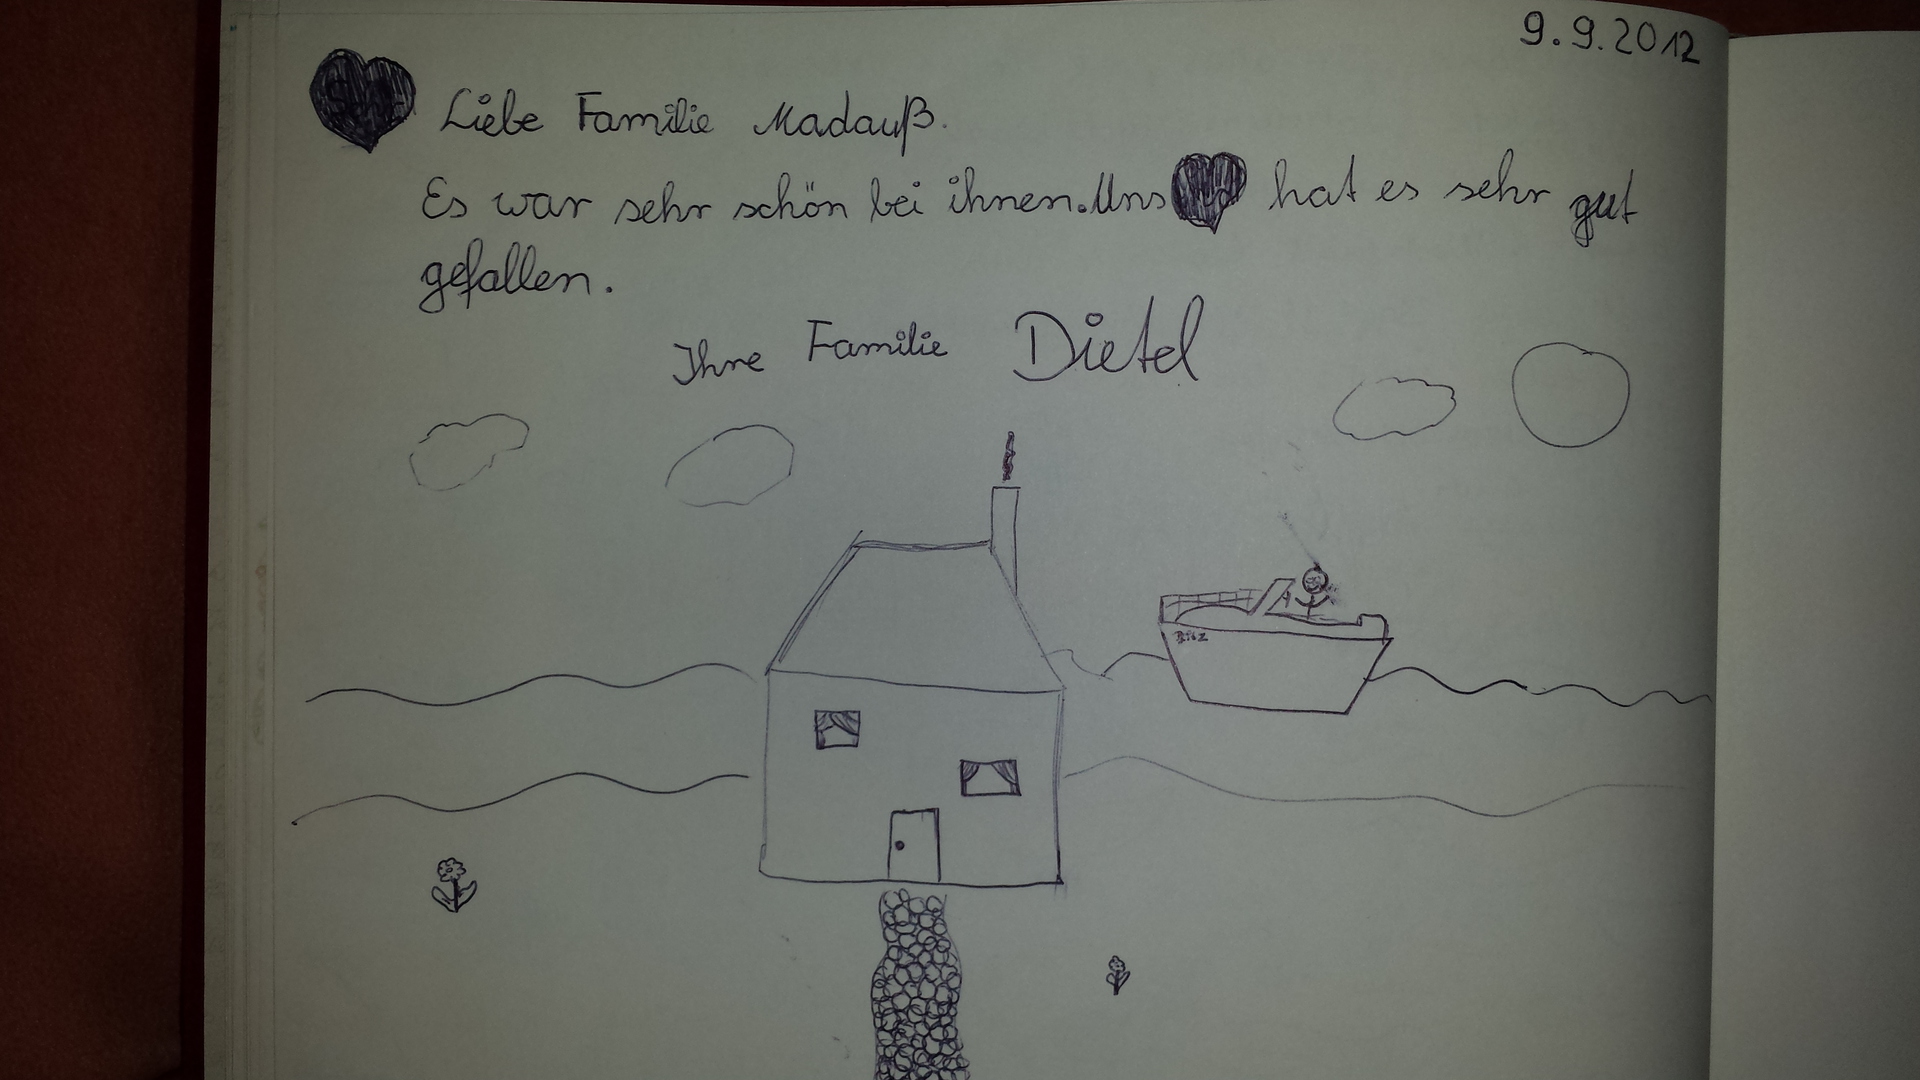 9.9.2012
Liebe Familie Madauß.
Es war sehr schön bei ihnen. Uns hat es sehr gut
gefallen.
Ihre Familie Dietel